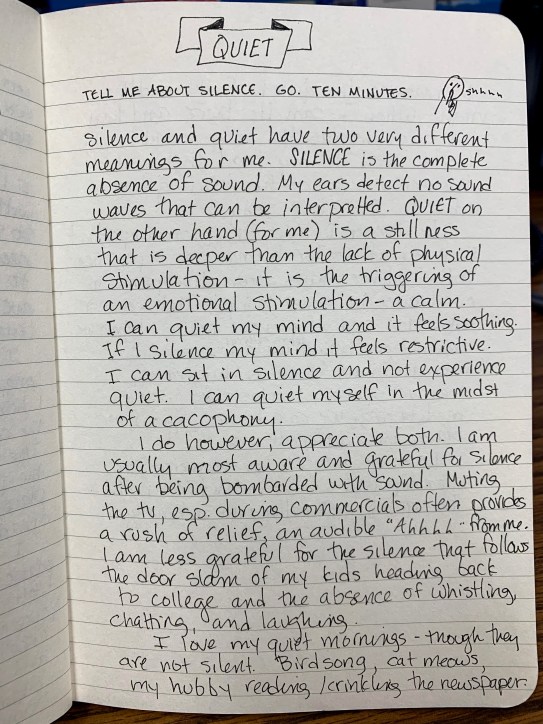 QUIET
TELL ME ABOUT SILENCE. GO. TEN MINUTES.
shhhh
silence and quiet have two very different
meanings for me. SILENCE is the complete
absence of sound. My ears detect no sound
waves that can be interpretted. QUIET on
the other hand (for me) is a stillness
that is deeper than the lack of physical
stimulation - it is the triggering of
an emotional stimulation - a calm.
I can quiet my mind and it feels soothing.
If I silence my mind it feels restrictive.
I can sit in silence and not experience
quiet. I can quiet myself in the midst
of a cacophony.
I do however, appreciate both. I am
usually most aware and grateful for silence
after being bombarded with sound. Muting
the tv, esp. during commercials often provides
a rush of relief, an audible "Ahhhh - from me.
I am less grateful for the silence that follows
the door slam of my kids heading back
to college and the absence of whistling,
chatting, and laughing.
I love my quiet mornings - though they
are not silent. Birdsong, cat meows,
my hubby reading/crinkling the newspaper.